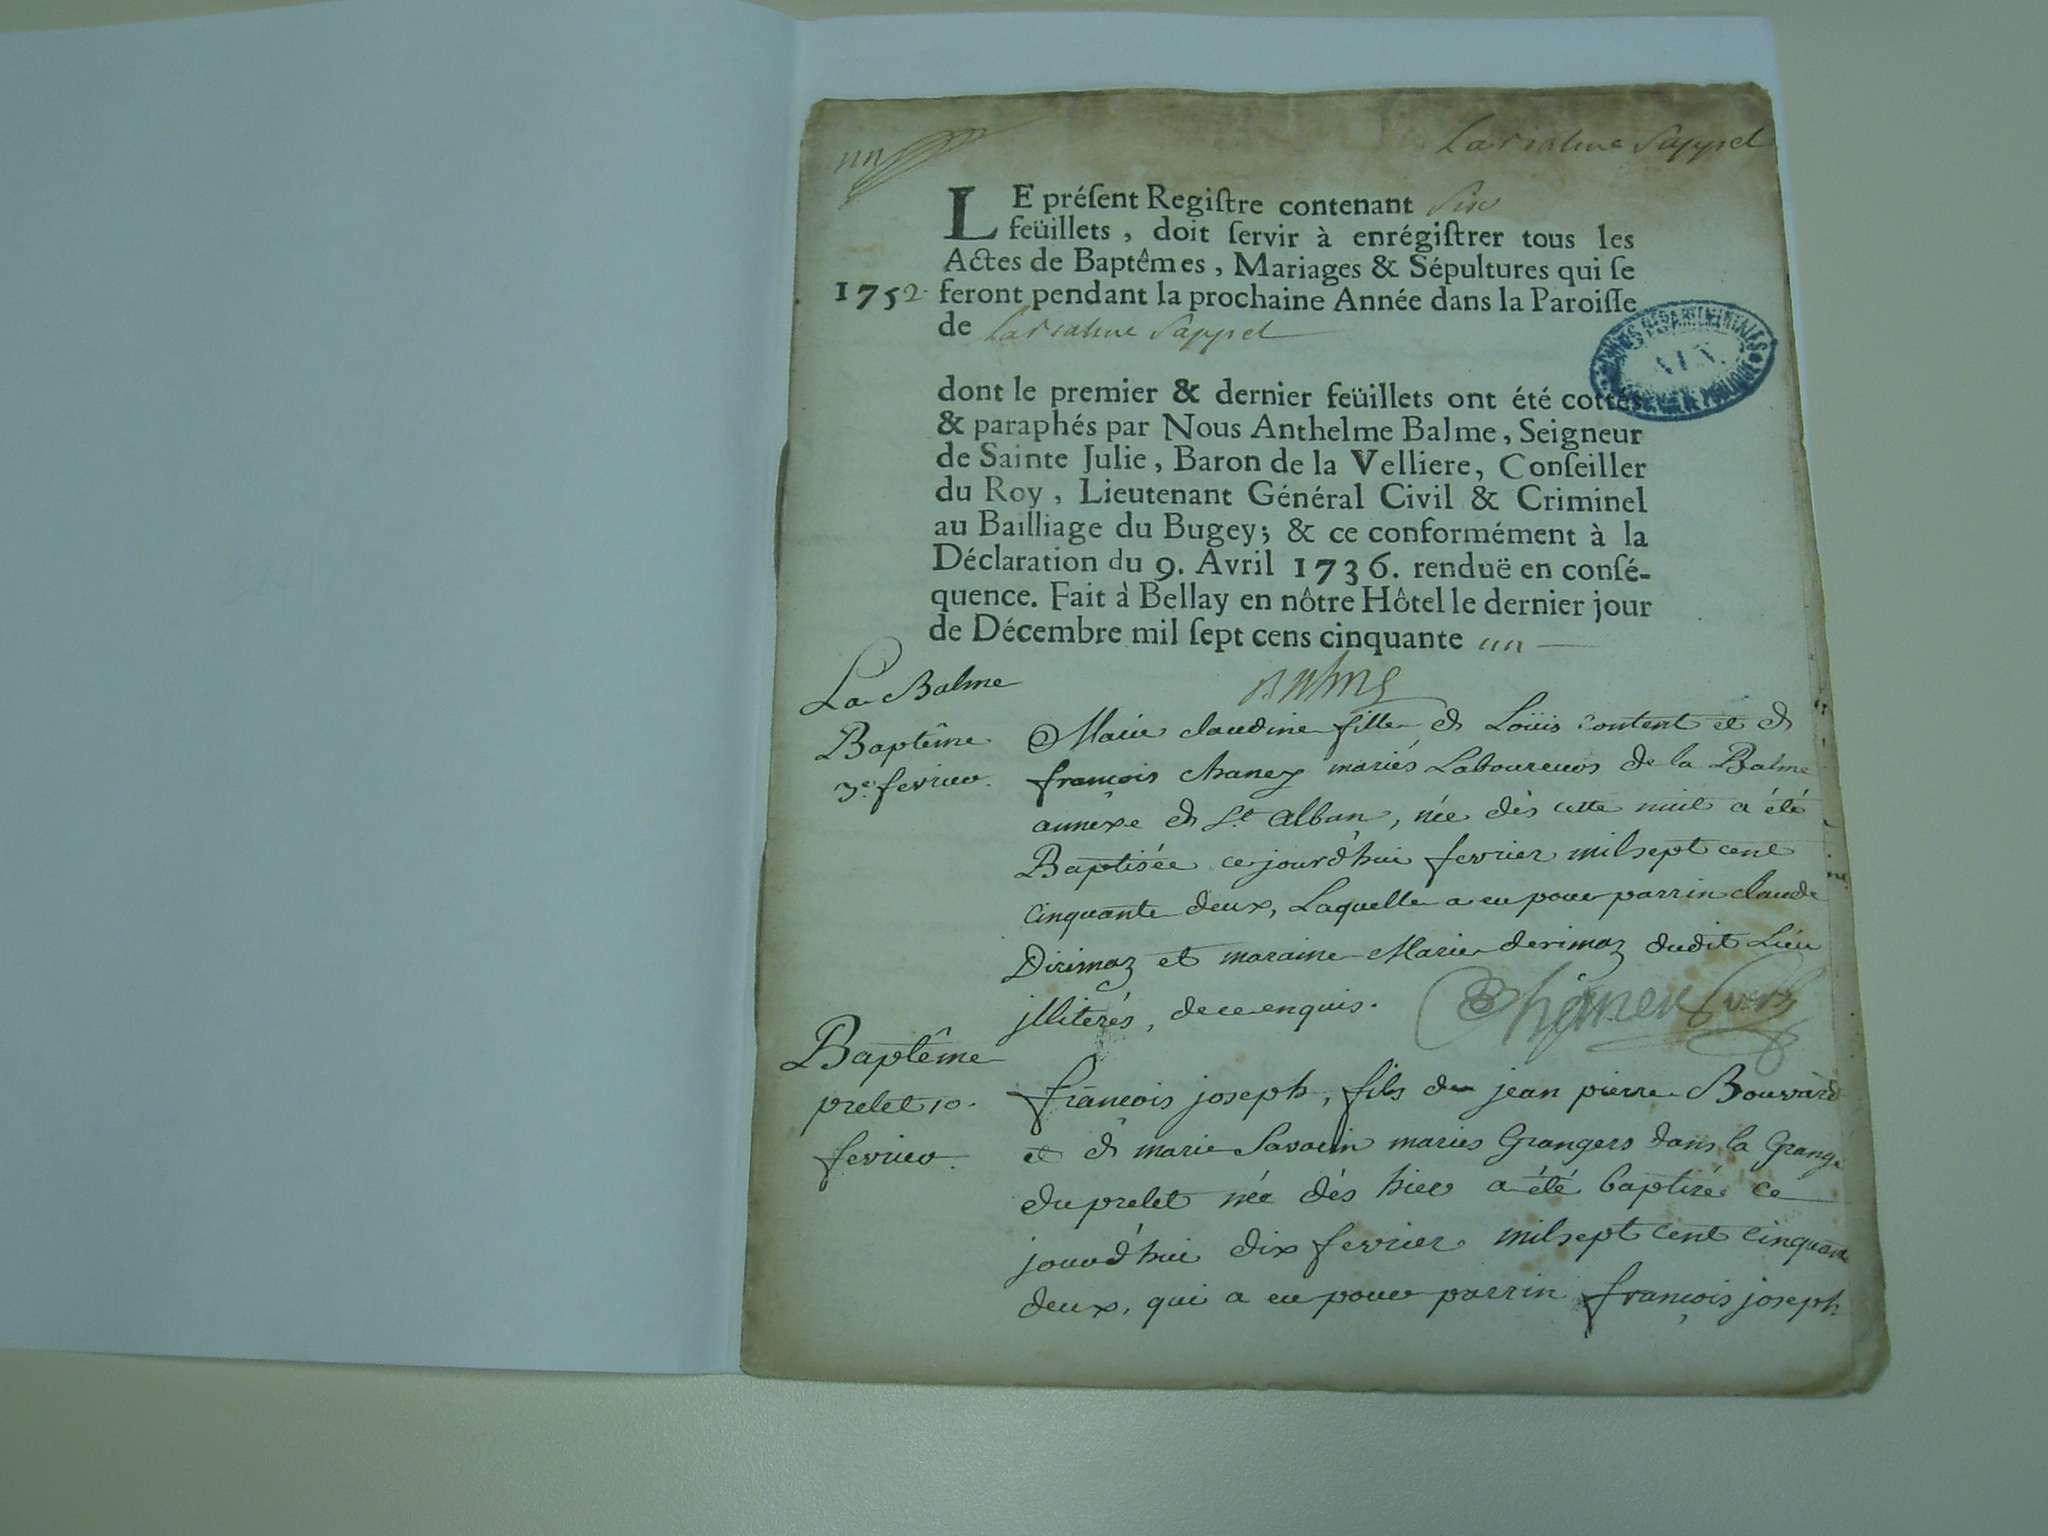 un
Labalme Sappel
LE préſent Regiſtre contenant Six
feüillets, doit ſervir à enrégiſtrer tous les
Actes de Baptêmes, Mariages & Sépultures qui ſe
1752. feront pendant la prochaine Année dans la Paroiſſe
de Labalme Sappel
dont le premier & dernier feüillets ont été cottés
& paraphés par Nous Anthelme Balme, Seigneur
de Sainte Julie, Baron de la Velliere, Conſeiller
du Roy, Lieutenant Général Civil & Criminel
au Bailliage du Bugey; & ce conformément à la
Déclaration du 9. Avril 1736. renduë en conſé-
quence. Fait à Bellay en nôtre Hôtel le dernier jour
de Décembre mil ſept cens cinquante un
Balme
La Balme
Baptême
3e fevrier.
Marie claudine fille de Loüis Content et de
françois chaney mariés Laboureurs de la Balme
annèxe de St alban, née dès cette nuit a été
Baptisée cejourd'hui fevrier milsept cent
cinquante deux, Laquelle a eu pour parrin claude
Dirimoz et maraine Marie derimoz dudit Lieu
jlliterés, de ce enquis.
Baptême
prelet 10.
fevrier.
françois joseph, fils de jean pierre Bouvard
et de marie Savarin mariés Grangers dans la Grange
du prelet née dés hier a été baptisé ce
jourd'hui dix fevrier milsept cent cinquante
deux, qui a eu pour parrin françois joseph